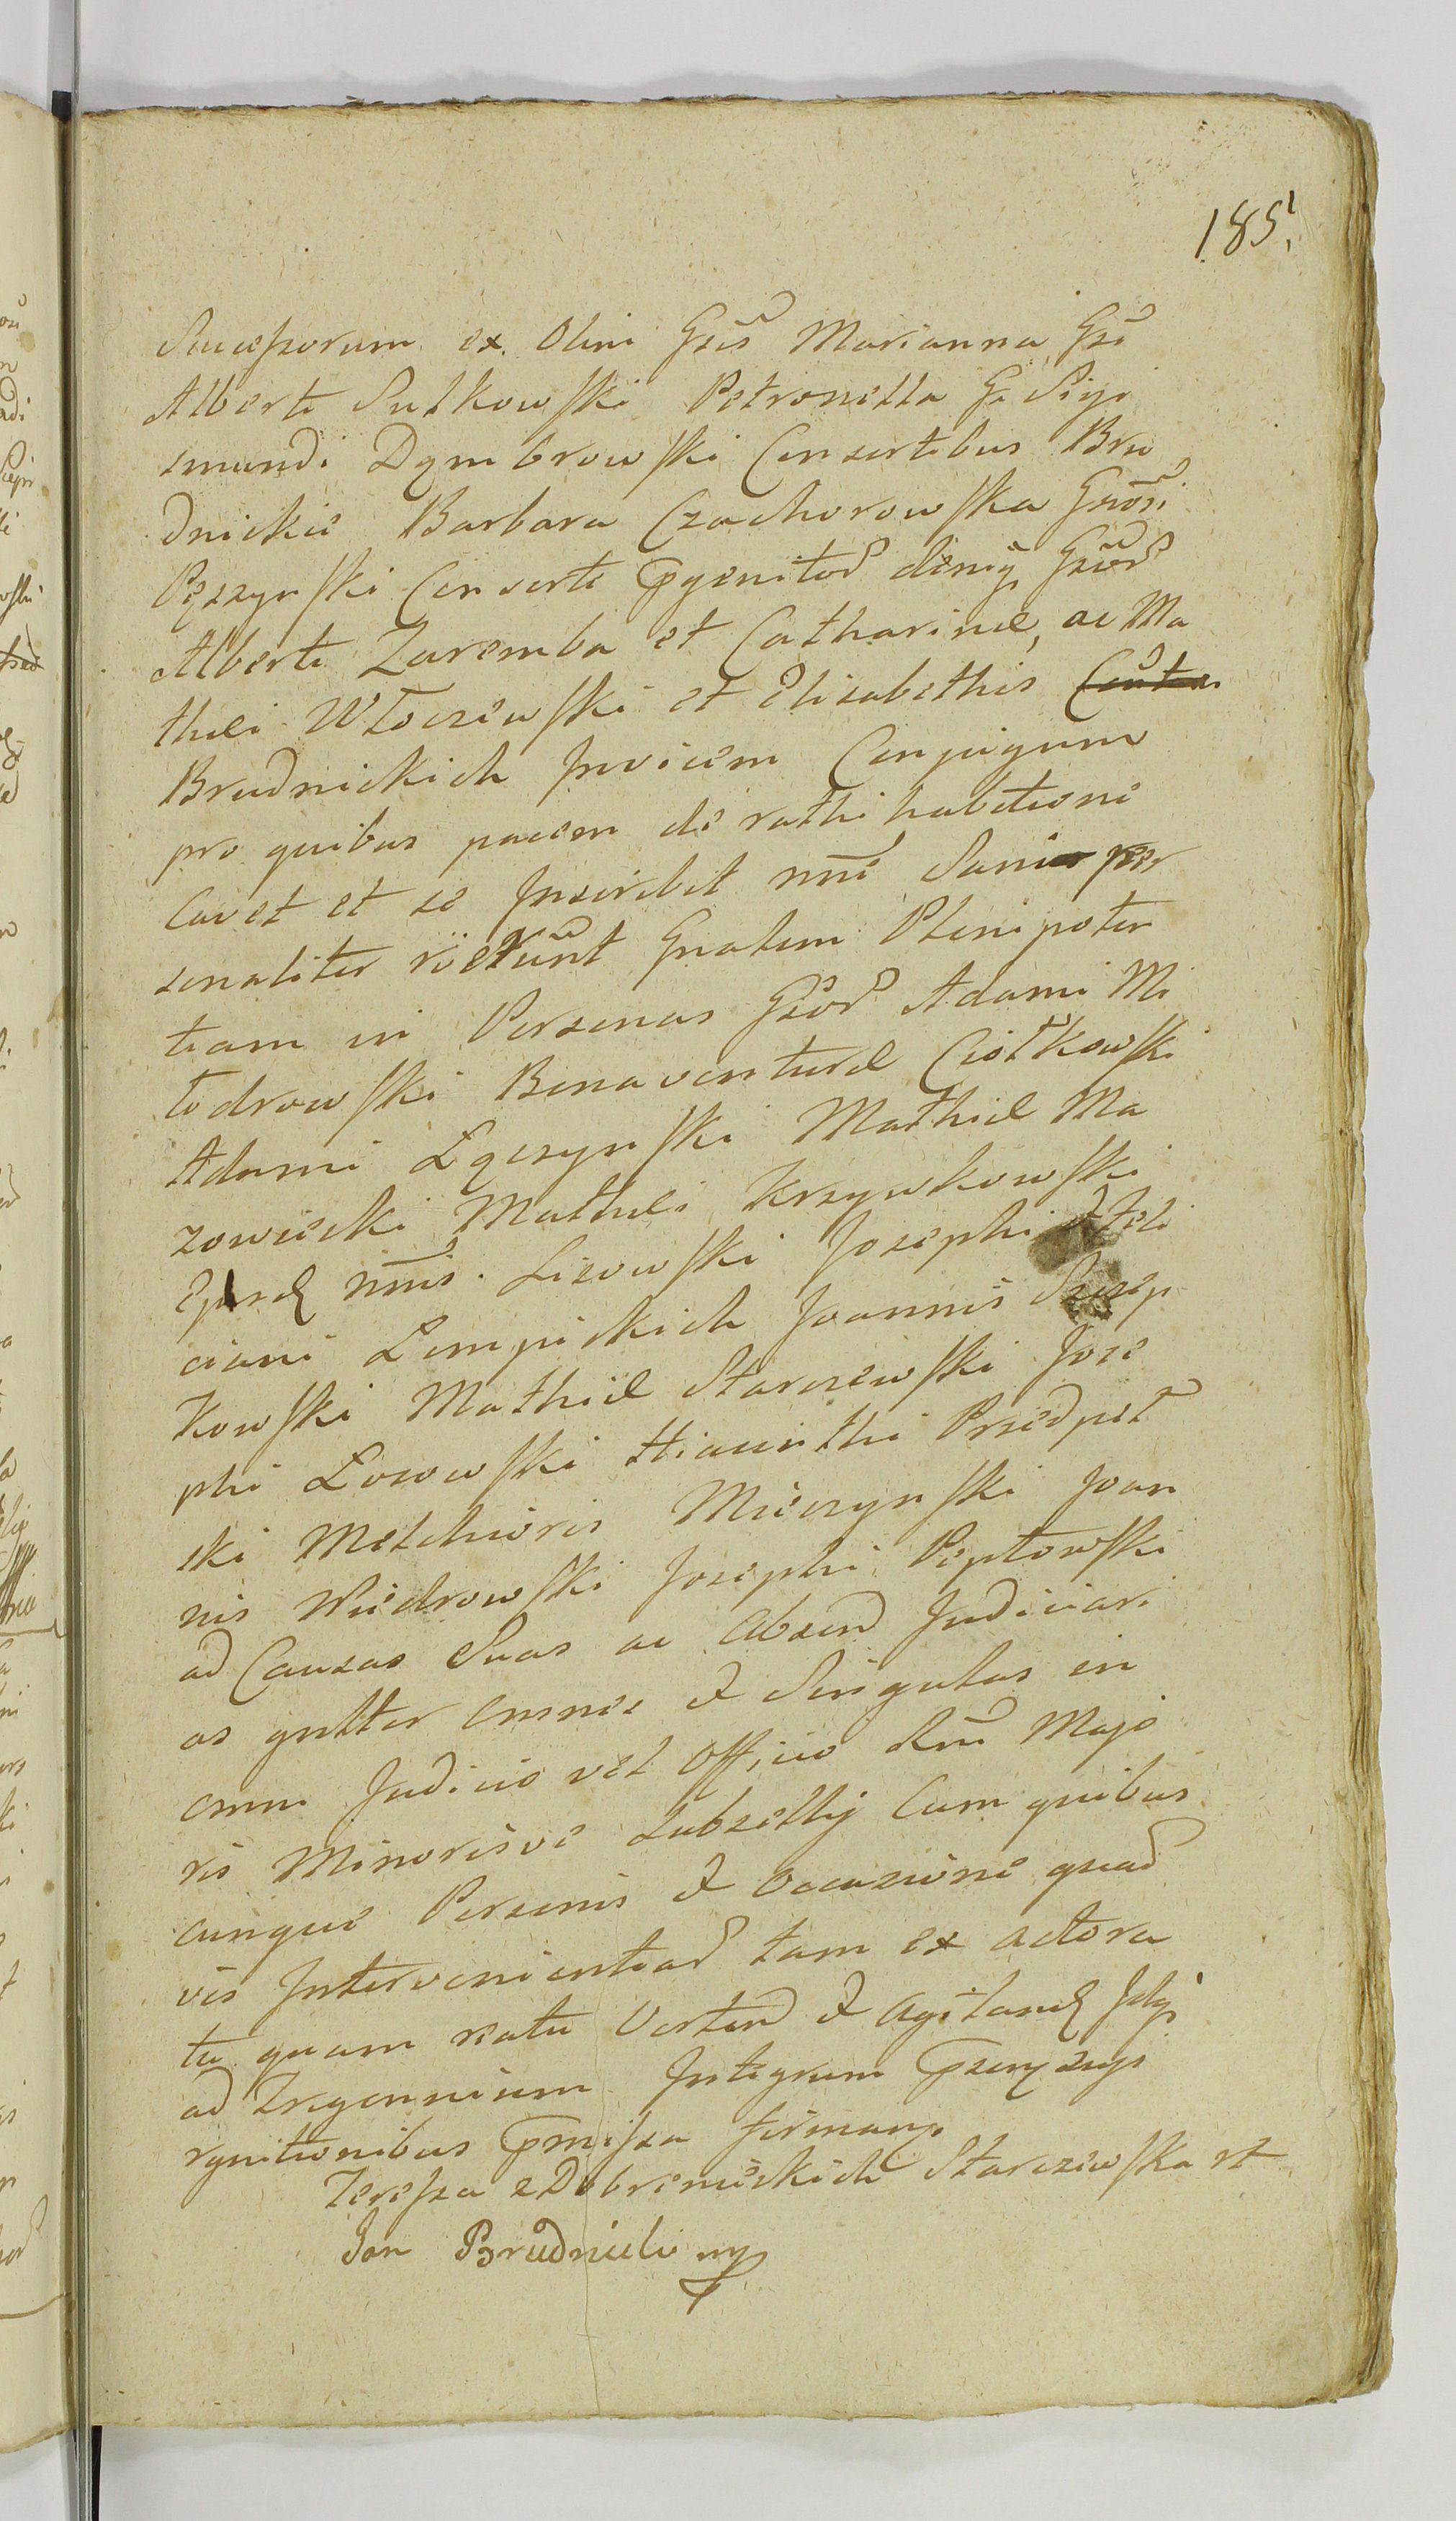 185.
Succeſsorum ex Olim Gsis Marianna Gsi
Alberti Sutkowſki Petronella G. Sigi
smundi Dąmbrowſki Consortibus Bru
dnickie Barbara Czachorowſka Gnosi
Pęszynſki Consorte Pgenitor deniq Gsior
Alberti Zaremba et Catharinæ, ac Ma
thæi Włoczewſki et Elisabethis
Brudnickich Invicem Conjugum
pro quibus pacem de rathi habitione
Cavet et se Inscribit nne Sani per
sonaliter Gnalem Plenipoten
tiam in Personas Gsior Adami Mi
todrowſki Bonaventuræ Ciołkowſki
Adami Łączynſki Mathiæ Ma
zowiecki Mathæi Krzywkowſki
nnis. Lisowſki Josephi et Feli
ciani Lempickich Joannis Szczep
kowſki Mathiæ Starczewſki Jose
phi Łosowſki Hiacinthi Przedpeł
ski Melchioris Mieczynſki Joan
nis Wiedrowſki Josephi Pepłowſki
ad Causas Suas ac Absend Judiciari
as gnlter omnes et Singulas in
omni Judicio vel Officio Rni Majo
ris Minorisve Subselly Cum quibus
cunque Personis et Occasione quad
vis Intervenientiad tam ex actora
tu quam reatu Vertend et agitand
ad Tregennium Integrum
rgnitionibus Pmiſsa firmans
Tereſsa z Dobrenieckich Starczewſka
Jan Brudnicki mp